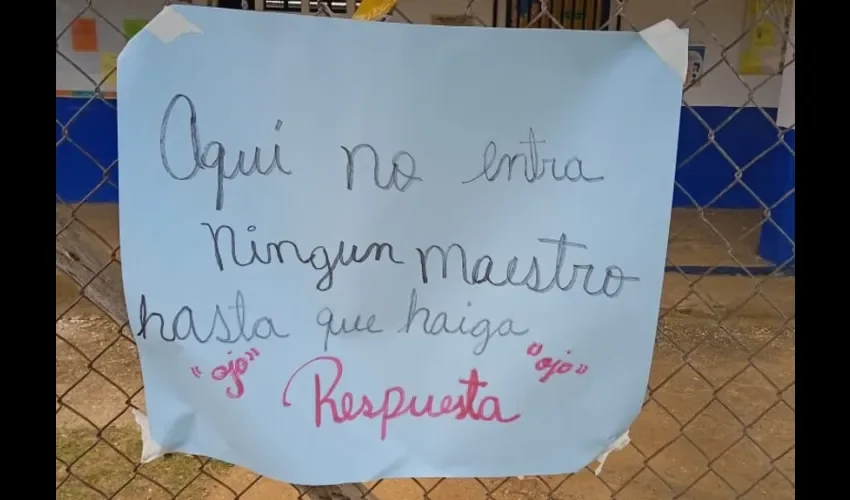 Aqui no entra
Ningun maestro
hasta que haiga
"ojo" Respuesta "ojo"